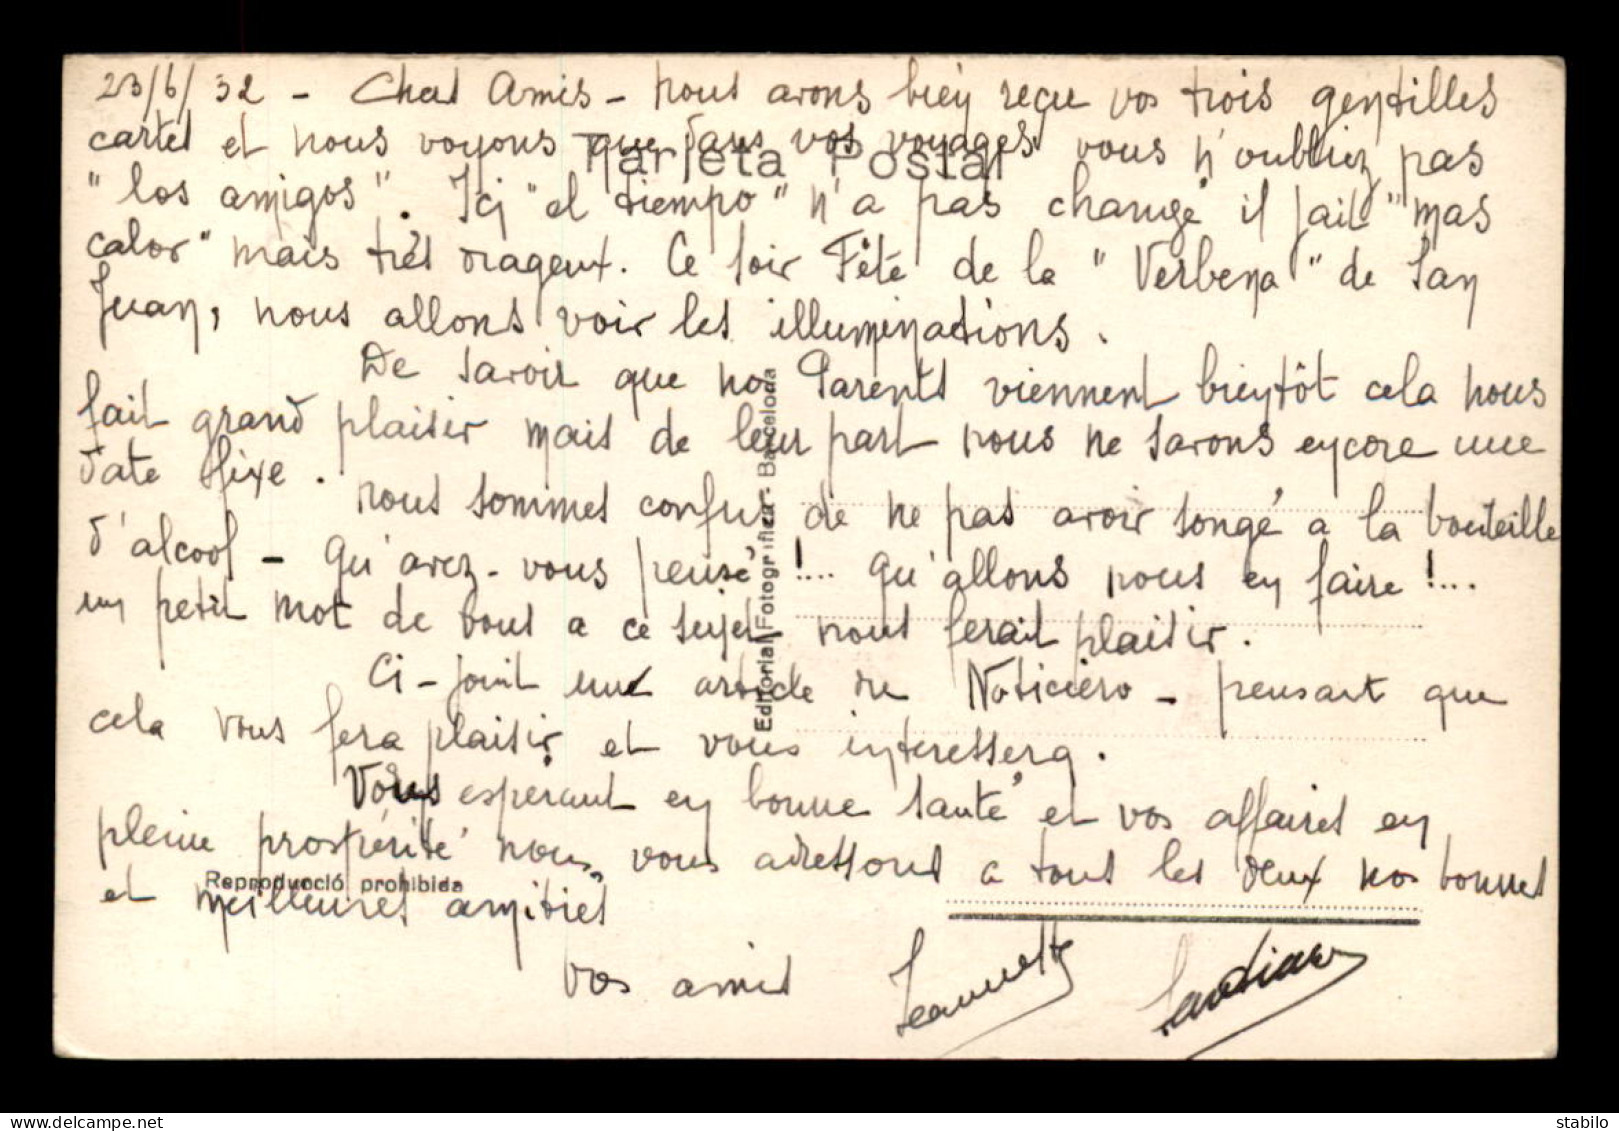 23/6/32 - Chers Amis - nous avons bien reçu vos trois gentilles
cartes et nous voyons que dans vos voyages vous n'oubliez pas
Tarjeta Postal
"los amigos". Ici "el tiempo" n'a pas changé il fait "mas
calor" mais très orageux. Ce soir Fête de la "Verbena" de San
Juan, nous allons voir les illuminations.
De savoir que nos Parents viennent bientôt cela nous
fait grand plaisir mais de leur part nous ne savons encore une
date fixe.
nous sommes confus de ne pas avoir songé a la bouteille
d'alcool - Qu'avez-vous pensé !... qu'allons nous en faire !...
un petit mot de vous a ce sujet nous ferait plaisir.
Ci-joint un article du Noticiero - pensant que
cela vous fera plaisir et vous interessera.
Vous esperant en bonne santé et vos affaires en
pleine prospérité nous vous adressons a tous les deux nos bonnes
et meilleures amitiés
Reproducció prohibida
Editorial Fotográfica - Barcelona
vos amis Jeannette
delcampe.net
stabilo